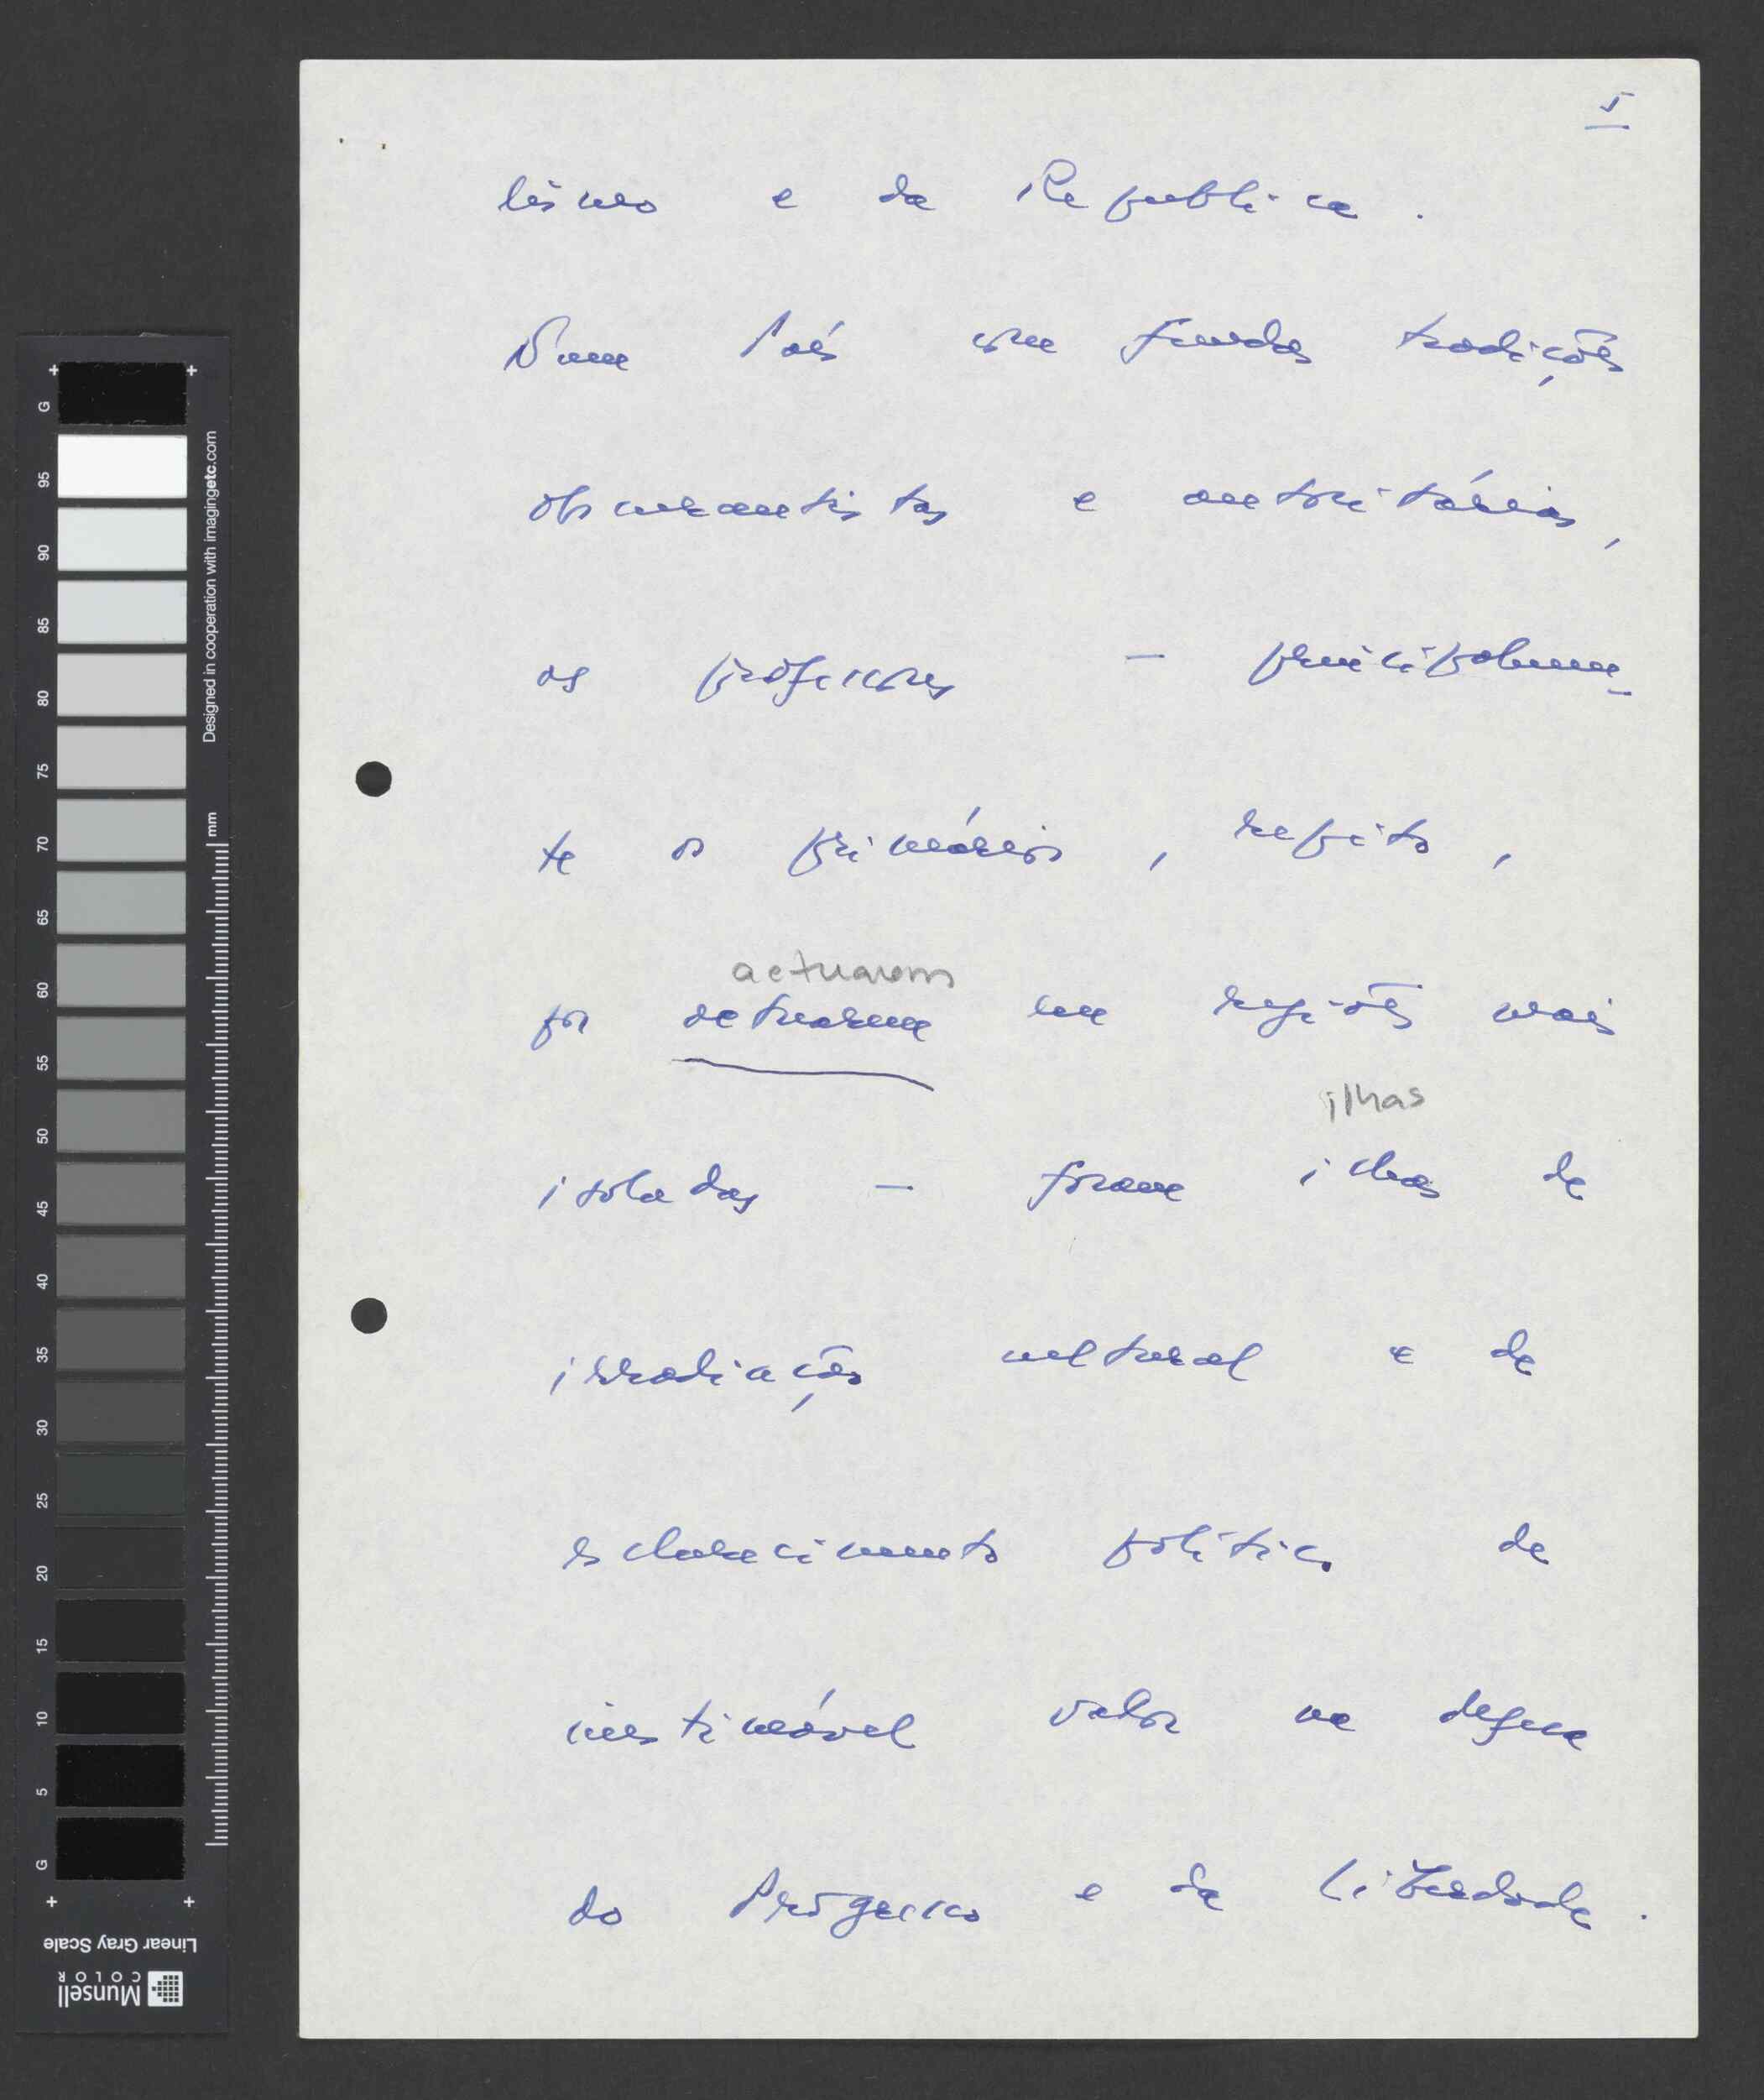 5
lismo e da Republica.
Num País com fundas tradições
obscurantistas e autoritárias,
os professores - principalmen-
te os primários, repito,
actuarem
por actuarem em regiões mais
ilhas
isoladas - foram ilhas de
irradiação cultural e de
esclarecimento político de
inestimável valor na defesa
do Progresso e da Liberdade.
G
95
90
85
80
75
70
65
60
55
50
45
40
35
30
25
20
15
10
5
G
mm
Designed in cooperation with imagingetc.com
Linear Gray Scale
Munsell
COLOR